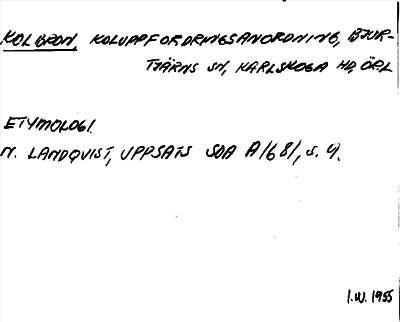 KOLBRON, KOLUPPFORDRINGSANORDNING, BJUR-
TJÄRNS SN, KARLSKOGA HD, ÖRL
ETYMOLOGI.
N. LANDQVIST, UPPSATS SOA A168/, s. 9.
I.W. 1955